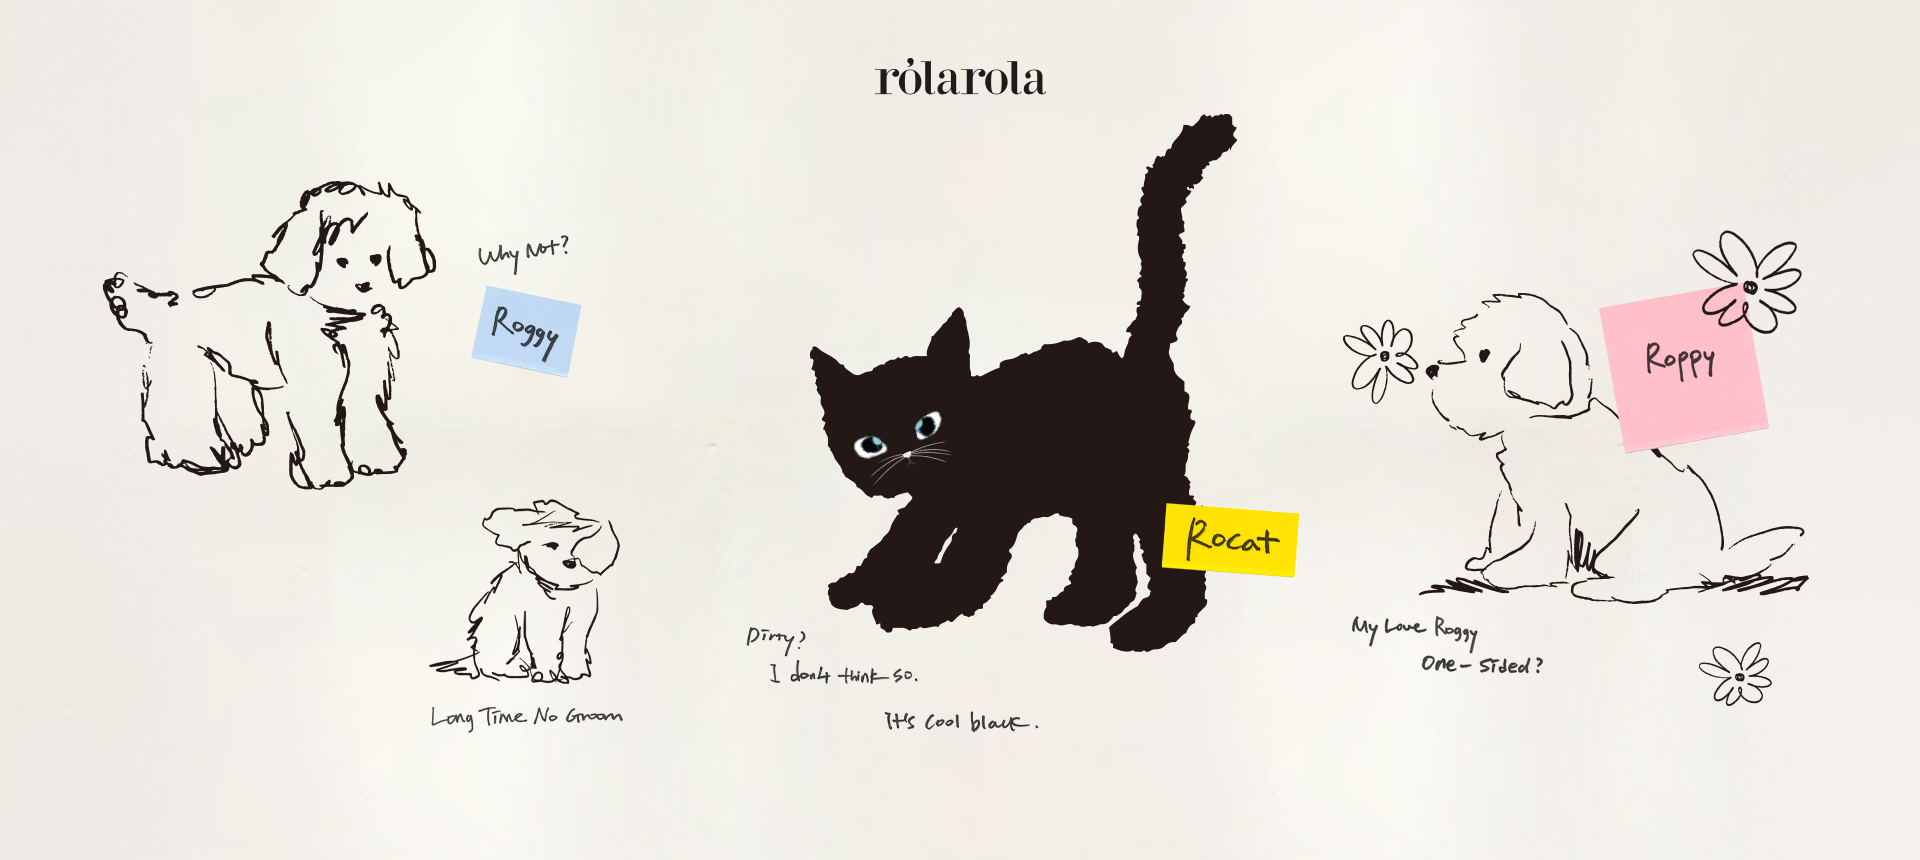 rólarola
Why Not?
Roggy
Long Time No Groom
Rocat
Dirty?
I don't think so.
It's cool black.
Roppy
My Love Roggy
One-sided?